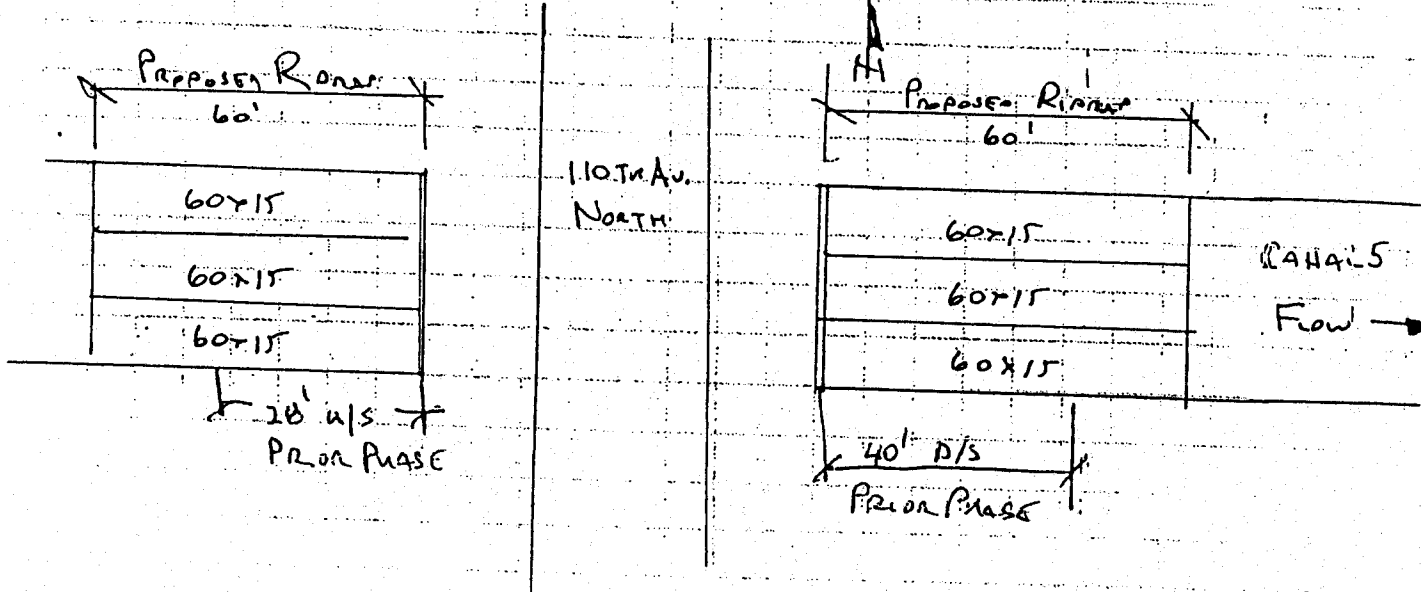 PROPOSED RIPRAP
60'
60x15
60x15
60x15
28' U/S
PRIOR PHASE
110TH AV.
NORTH
PROPOSED RIPRAP
60'
60x15
60x15
60x15
CANAL 5
FLOW
40' D/S
PRIOR PHASE